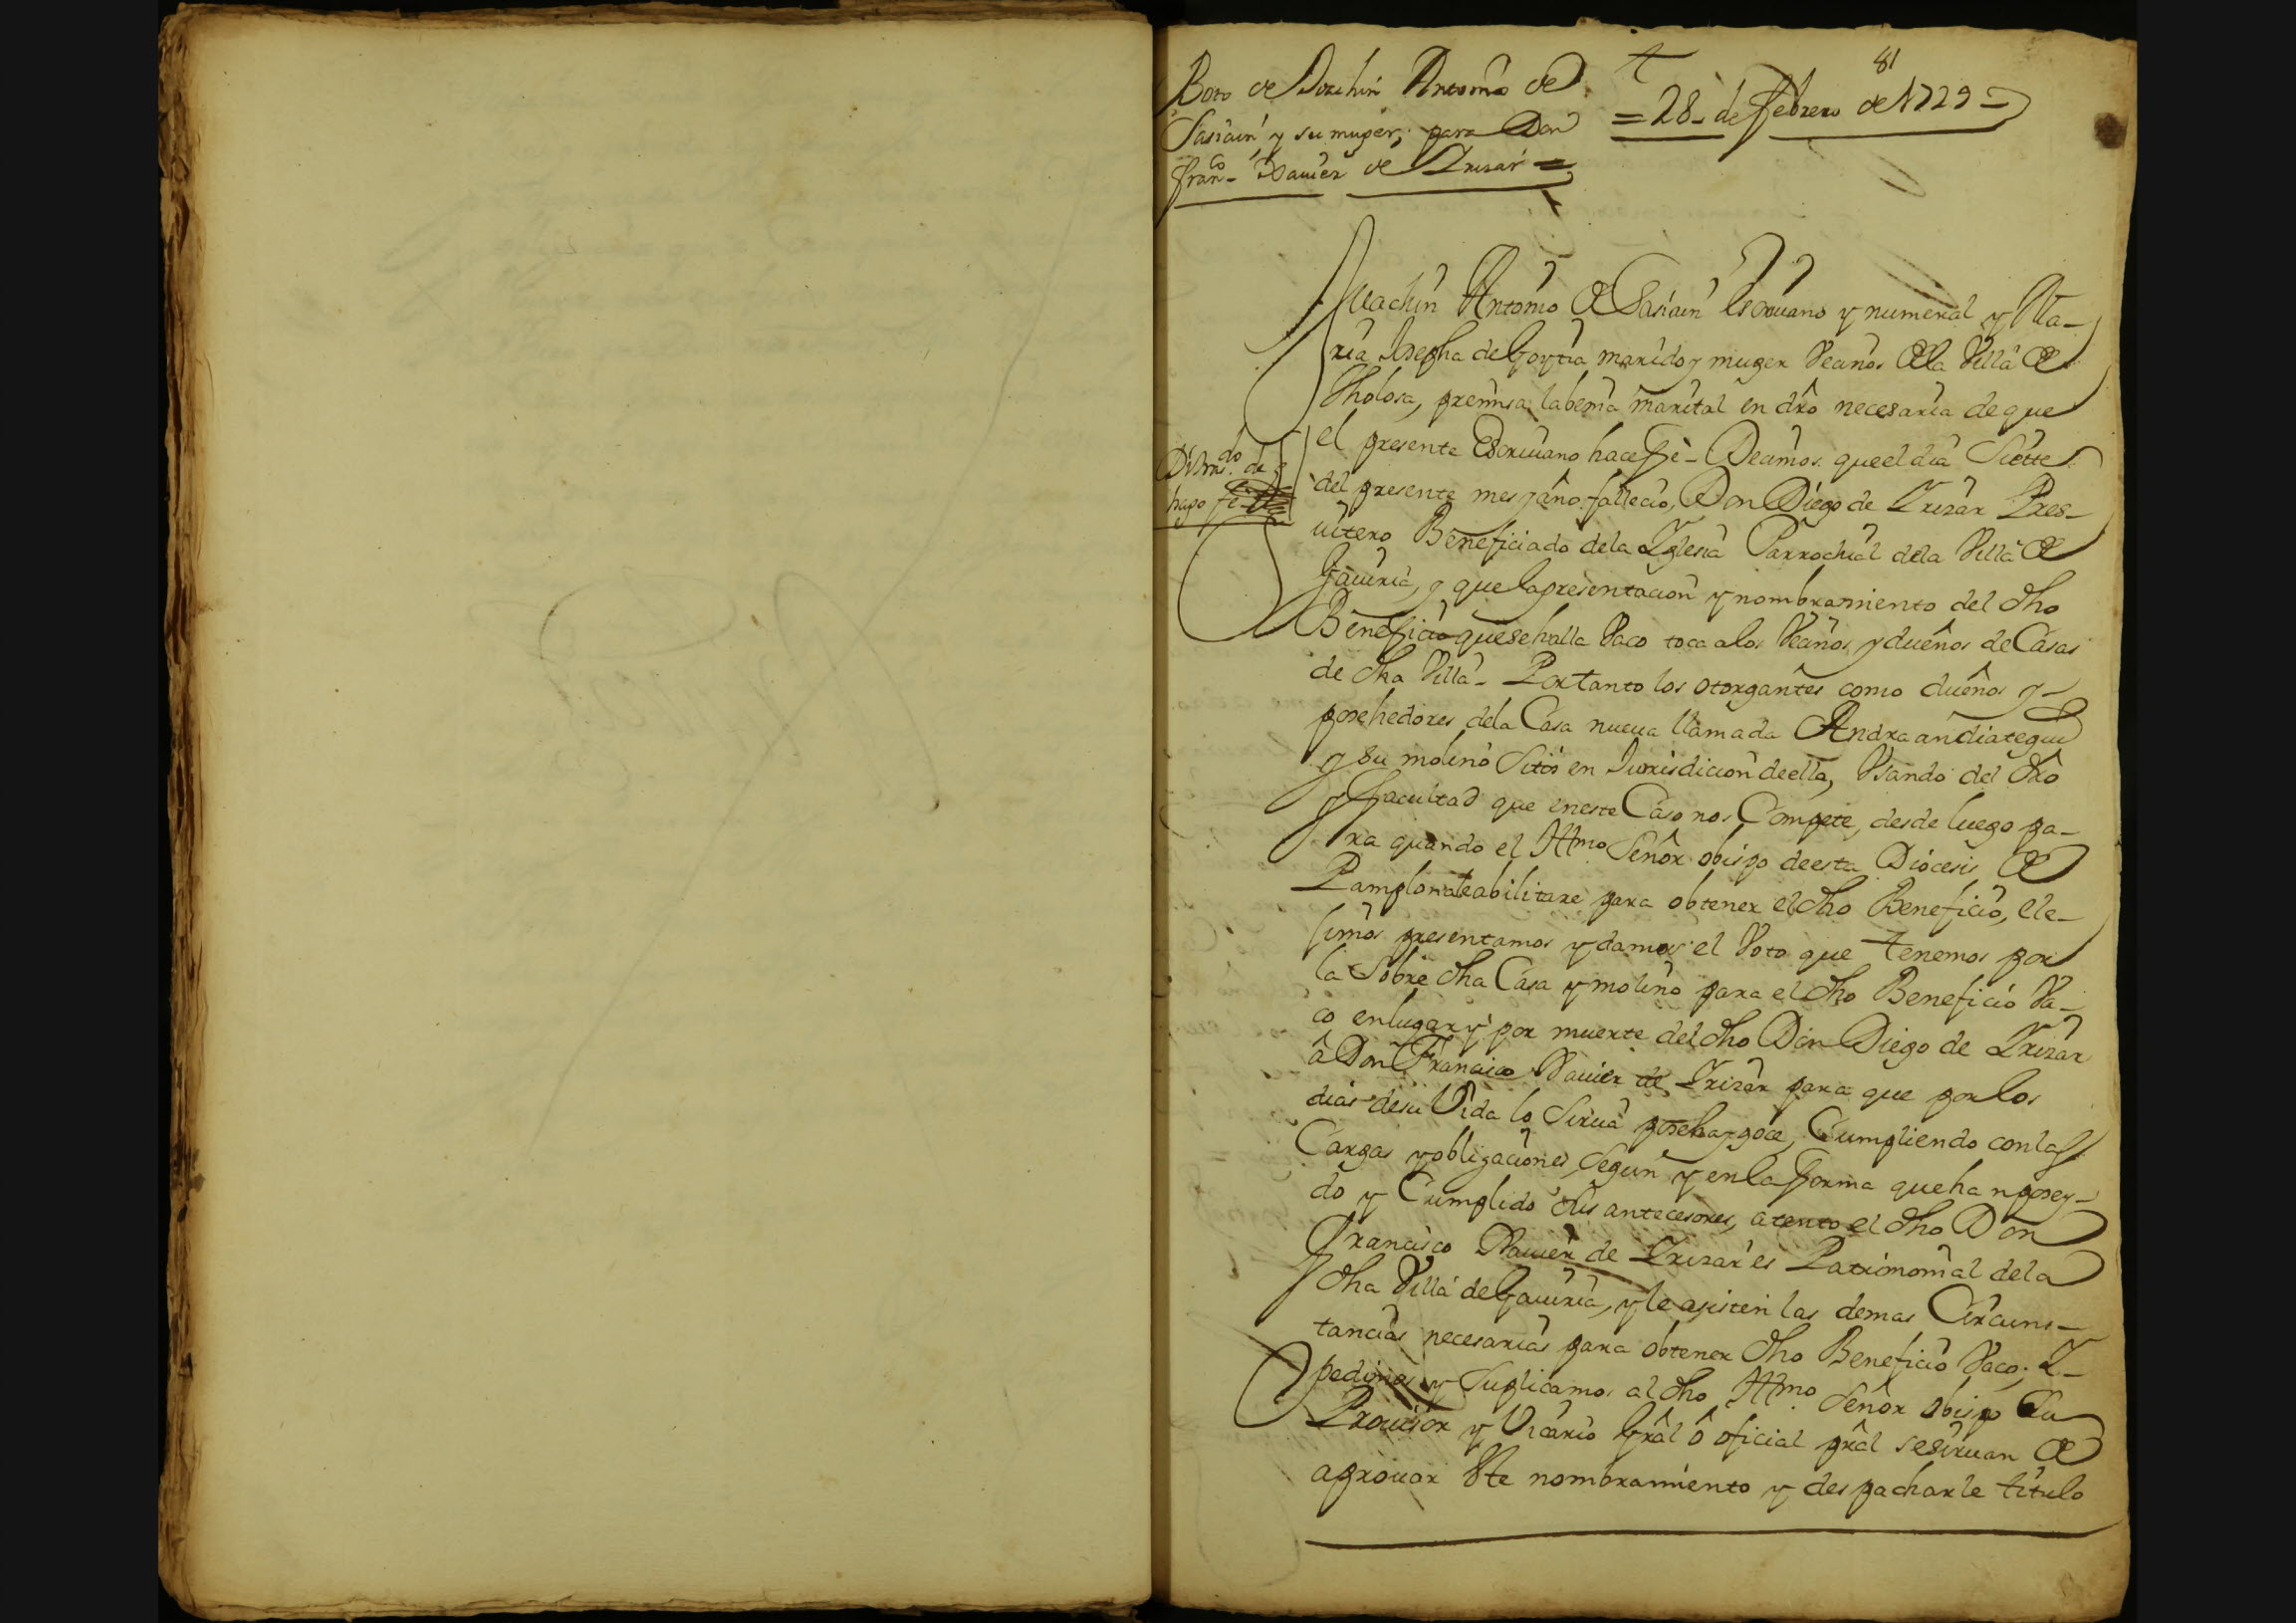 81
Boto de Juachin Antonio de
Sasiain, y su muger; para Don
fran.co Xauier de Yrizar =
= 28 - de febrero de 1729 -
Juachin Antonio de Sasiain Escriuano y numeral y Ma-
ria Josepha de Goytia marido y muger Vecinos de la Villa de
Tholosa, premisa la benia marital en dro necesaria de que
el presente Escriuano hace feè - Decimos que el dia Siette
del presente mes y año fallecio, Don Diego de Yrizar Pres-
uitero Beneficiado de la Yglesia Parrochial dela Villa de
Gauiria, y que la presentacion y nombramiento del dho
Beneficio que se halla Vaco toca a los Vecinos y dueños de Casas
de dha Villa - Por tanto los otorgantes como dueños y -
posehedores, dela Casa nueua llamada Andra andiategui
y su molino Sitos en Jurisdicion de ella, Vsando del dro
y facultad que en este Caso nos Compete, desde luego pa-
ra quando el Illmo Señor obispo de esta Diocesis de
Pamplona le abilitare para obtener el dho Beneficio, ele-
jimos presentamos y damos el Voto que tenemos por
la Sobre dha Casa y molino para el dho Beneficio Va-
co en lugar y por muerte del dho Don Diego de Yrizar
â Don Francisco Xauier de Yrizar para que por los
dias de su Vida lo Sirua poseha y goce, Cumpliendo con las
Cargas y obligaciones, Segun y en la forma que han posey-
do y Cumplido Sus antecesores, atento el dho Don
Francisco Xauier de Yrizar es Patrimonial dela
dha Villa de Gauiria, y le asisten las demas Circuns-
tancias necesarias para obtener dho Beneficio Vaco; Y -
pedimos y Suplicamos al dho Illmo Señor obispo Su
Prouisor y Vicario Gral ô oficial pral se siruan de
aprouar Este nombramiento y despacharle titulo